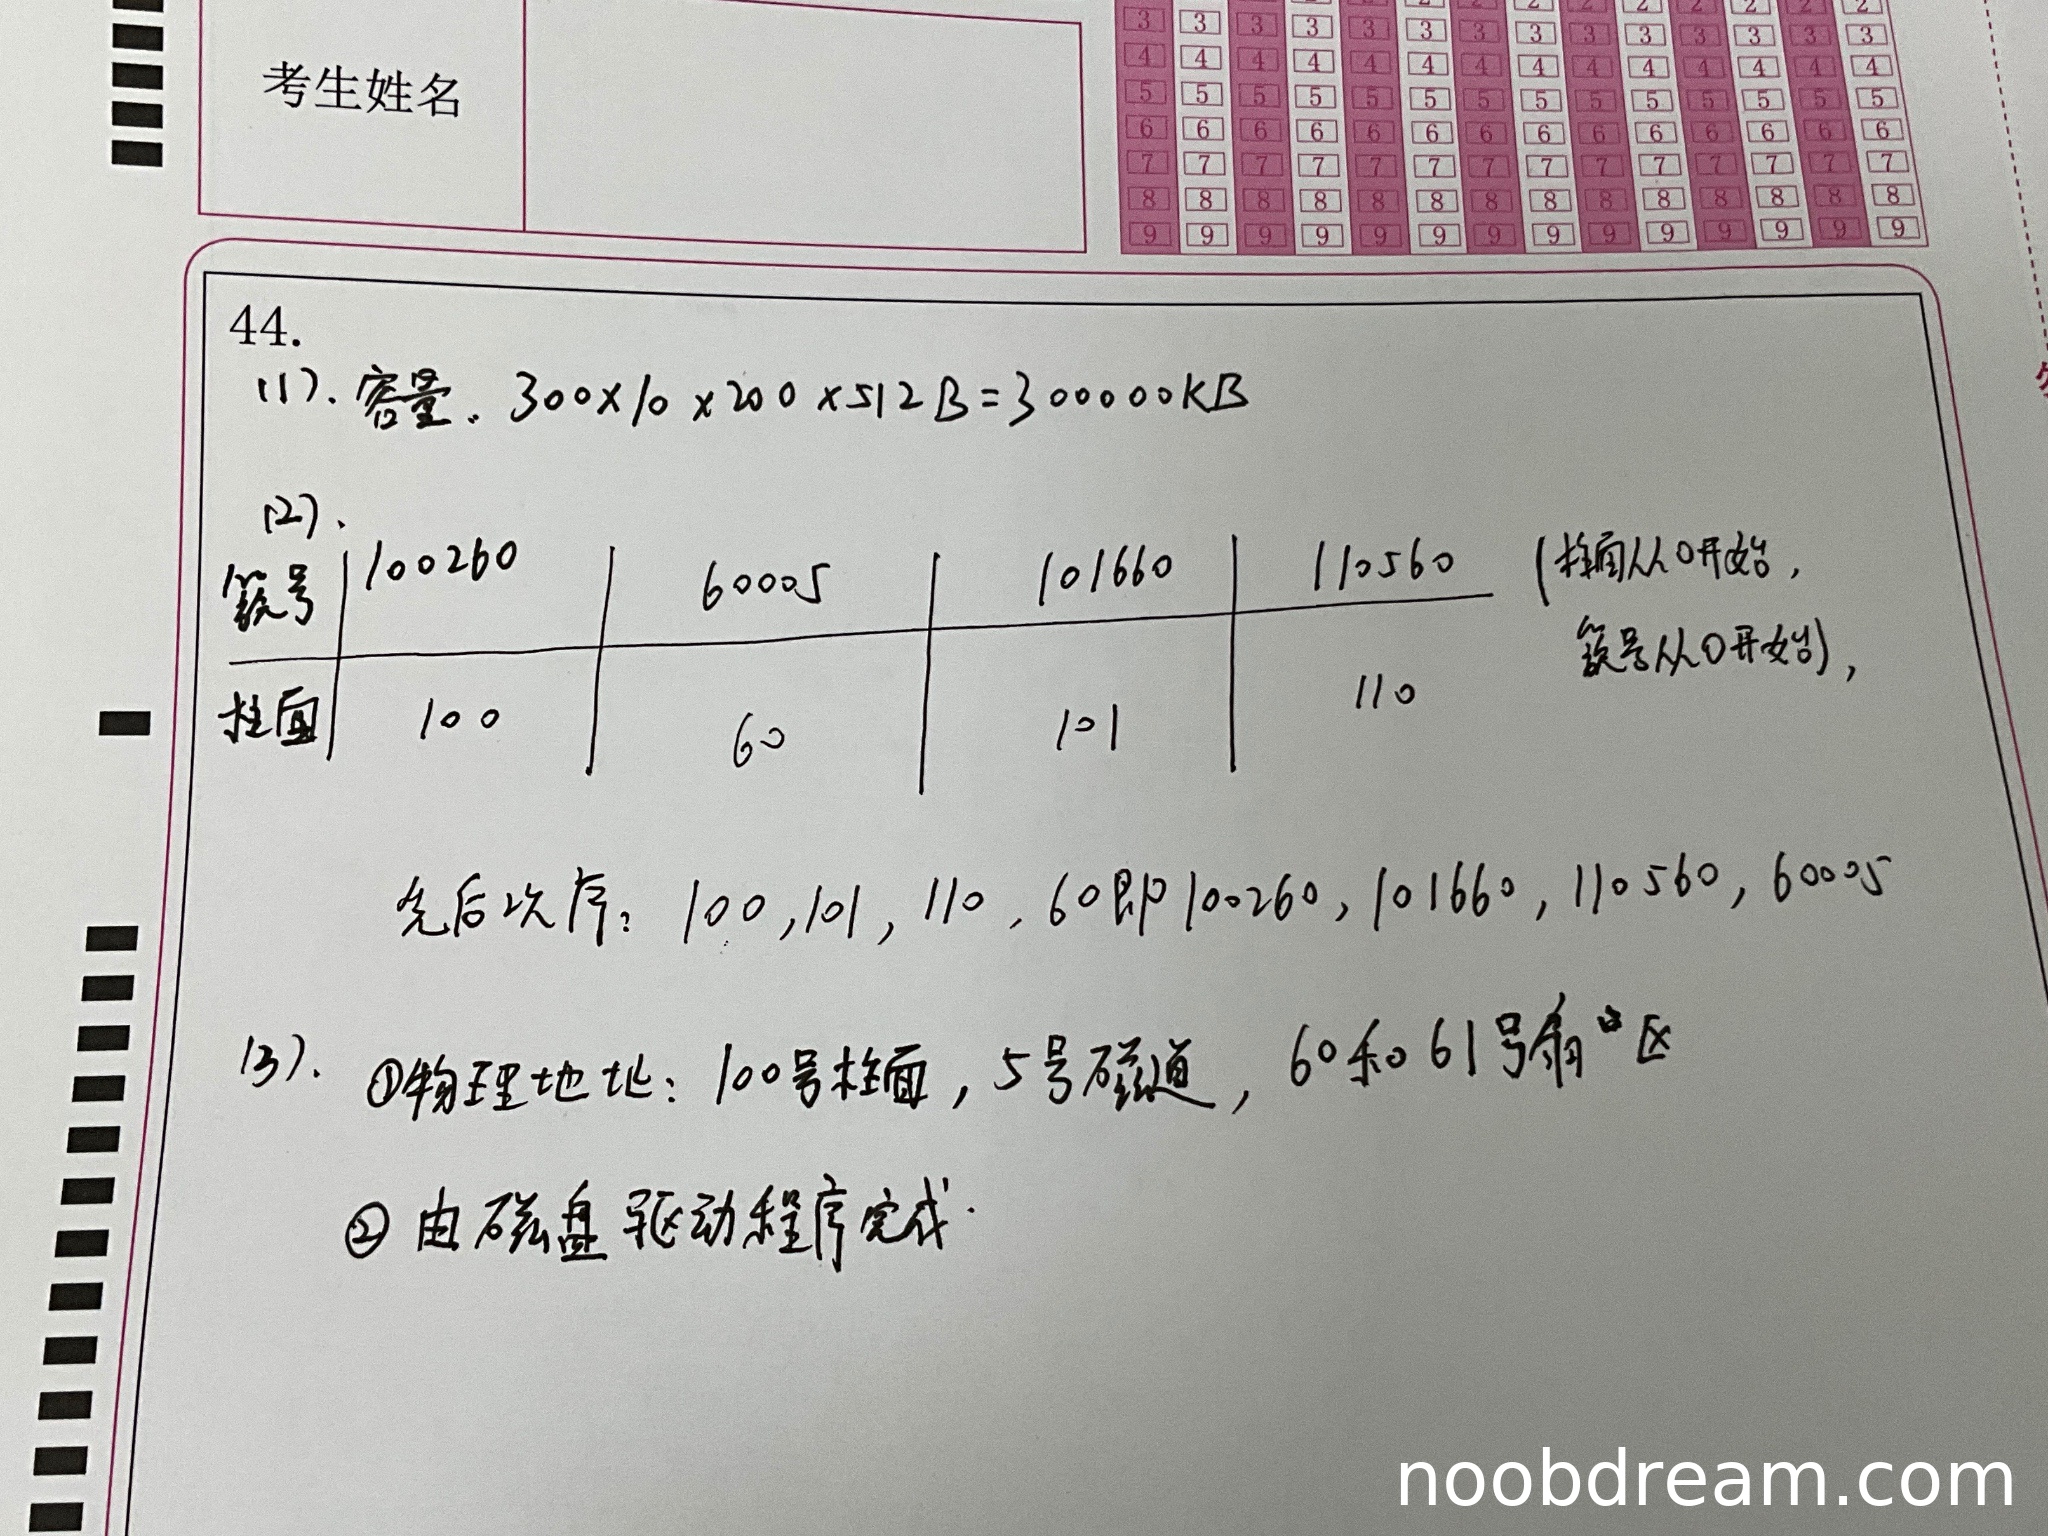 3 3 3 3 3 3 3 3 3 3 3 3 3 3
4 4 4 4 4 4 4 4 4 4 4 4 4 4
5 5 5 5 5 5 5 5 5 5 5 5 5 5
6 6 6 6 6 6 6 6 6 6 6 6 6 6
7 7 7 7 7 7 7 7 7 7 7 7 7 7
8 8 8 8 8 8 8 8 8 8 8 8 8 8
9 9 9 9 9 9 9 9 9 9 9 9 9 9
考生姓名
44.
(1). 容量. 300×10×200×512B=300000KB
(2).
簇号 100260 60005 101660 110560 (柱面从0开始,
簇号从0开始),
柱面 100 60 101 110
先后次序: 100, 101, 110, 60即100260, 101660, 110560, 60005
(3). ①物理地址: 100号柱面, 5号磁道, 60和61号扇区
② 由磁盘驱动程序完成.
noobdream.com